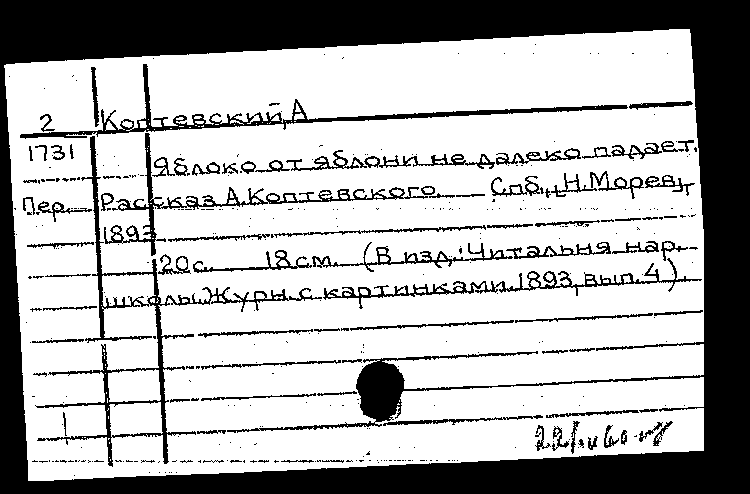 2 Коптевский, А
1731 Яблоко от яблони не далеко падает.
Пер. Рассказ А. Коптевского. Спб., "Н. Морев",
1893
20с. 18см. (В изд.: Читальня нар.
школы. Журн. с картинками. 1893, вып. 4).